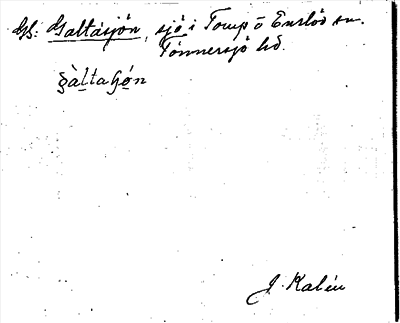 Gl: Galtåsjön, sjö i Tomp ö Enslöv sn.
Tönnersjö hd.
J. Kalén